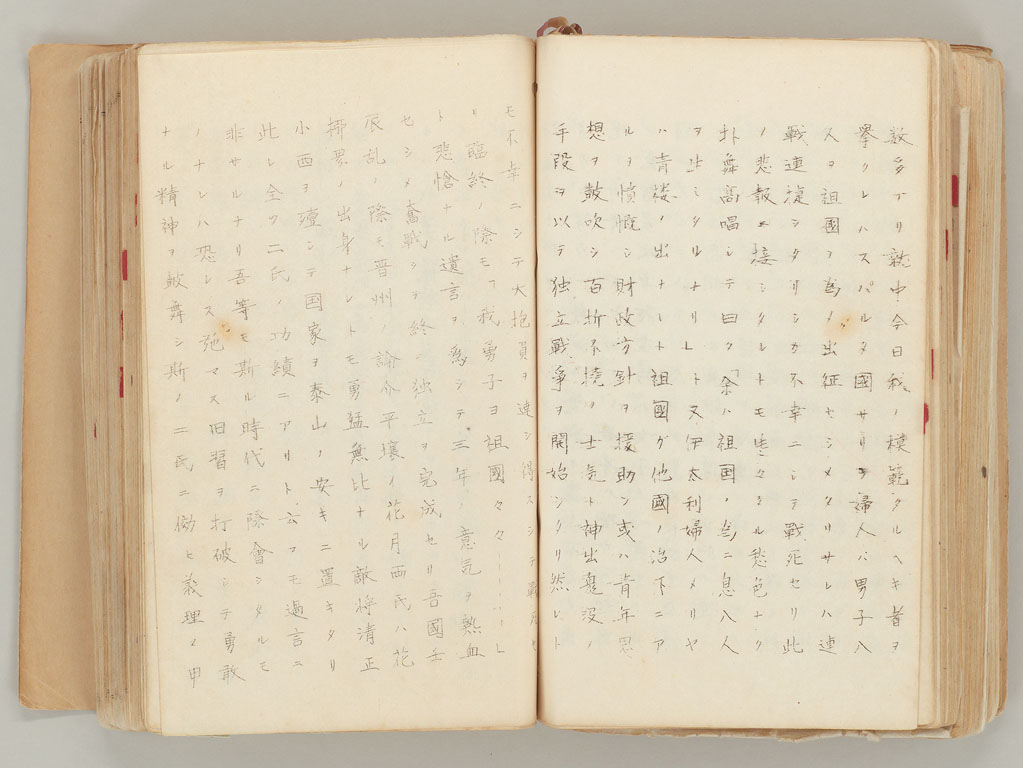 数多アリ就中今日我ノ模範タルヘキ者ヲ
挙クレハスパルタ國サリヲ婦人ハ男子八
人ヲ祖國ノ為メ出征セシメタリサレハ連
戦連捷シタリシカ不幸ニシテ戦死セリ此
ノ悲報ニ接シタレトモ些々タル愁色ナク
抃舞高唱シテ曰ク「余ハ祖国ノ為ニ息八人
ヲ生ミタルナリ」ト又伊太利婦人メリヤ
ハ青楼ノ出ナレト祖國ガ他國ノ治下ニア
ルヲ憤慨シ財政方針ヲ援助シ或ハ青年思
想ヲ鼓吹シ百折不撓ノ士気ト神出鬼没ノ
手段ヲ以テ独立戦争ヲ開始シタリ然レト
モ不幸ニシテ大抱負ヲ達シ得スシテ戦死セ
リ臨終ノ際モ「我勇子ヨ祖國々々‥‥‥」
ト悲愴ナル遺言ヲ為シテ三年ノ意気ヲ熱血
セシメ奮戦シ終ニ独立ヲ完成セリ吾國壬
辰乱ノ際モ晋州ノ論介平壌ノ花月両氏ハ花
柳界ノ出身ナレトモ勇猛無比ナル敵将清正
小西ヲ殪シテ国家ヲ泰山ノ安キニ置キタリ
此レ全ク二氏ノ功績ニアリト云フモ過言ニ
非サルナリ吾等モ斯ル時代ニ際會シタルモ
ノナレハ恐レス弛マス旧習ヲ打破シテ勇敢
ナル精神ヲ鼓舞シ斯ノ二氏ニ倣ヒ義理ノ甲